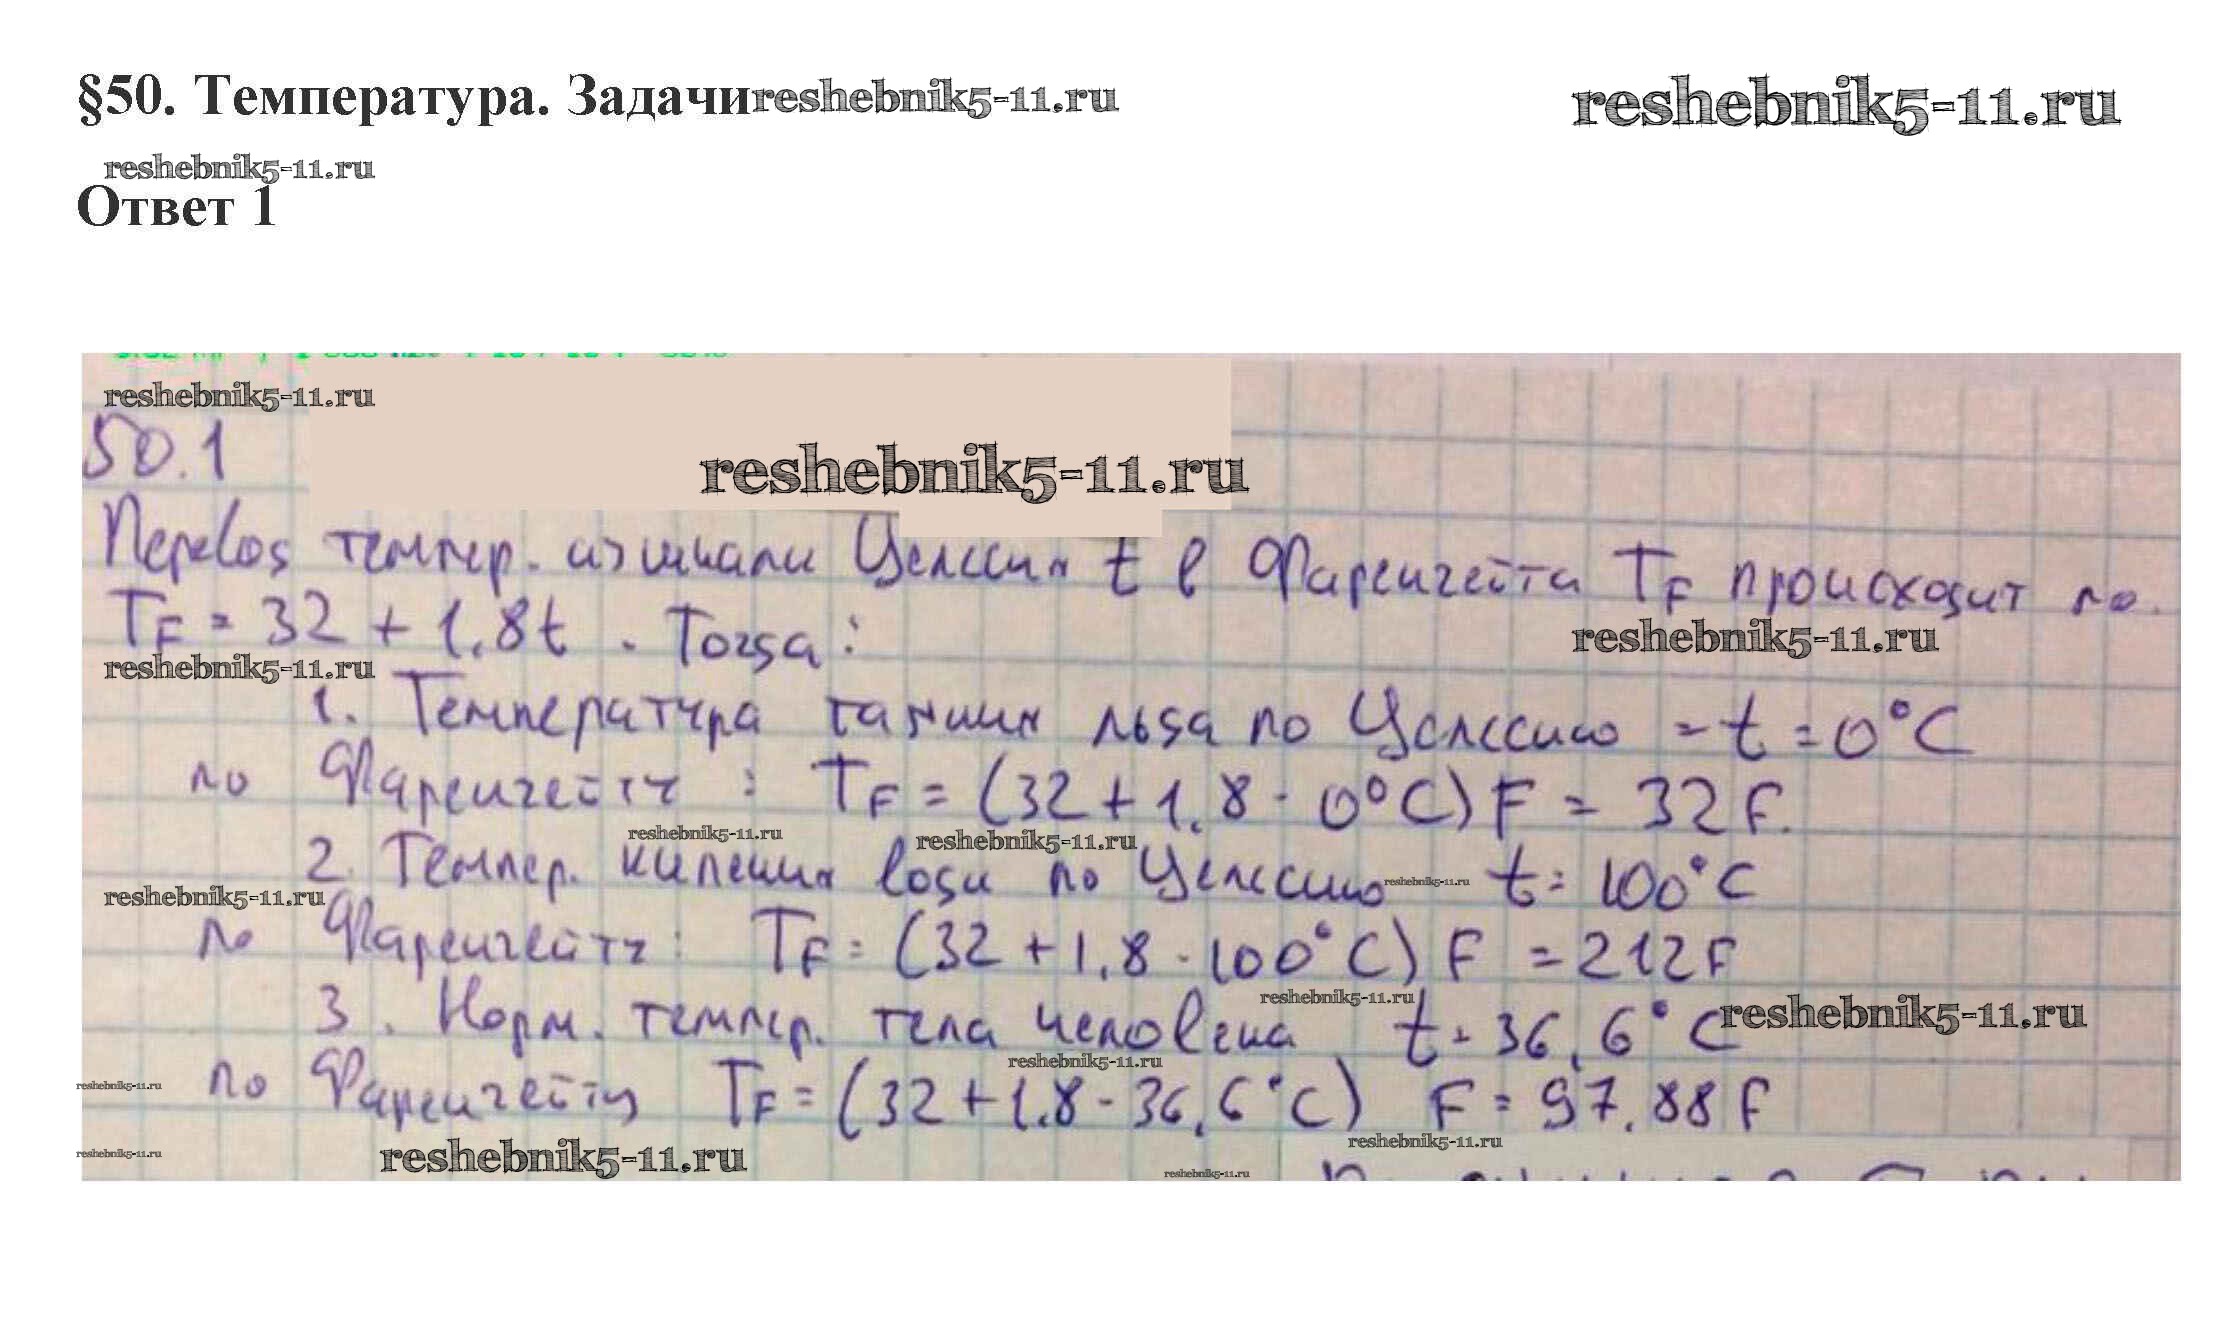 §50. Температура. Задачи reshebnik5-11.ru reshebnik5-11.ru
reshebnik5-11.ru
Ответ 1
reshebnik5-11.ru
50.1
reshebnik5-11.ru
Перевод темпер. из шкалы Цельсия t в Фаренгейта TF происходит по
TF = 32 + 1.8t . Тогда:
reshebnik5-11.ru
reshebnik5-11.ru
1. Температура таяния льда по Цельсию - t = 0°C
по Фаренгейту : TF = (32 + 1.8 · 0°C) F = 32F.
reshebnik5-11.ru reshebnik5-11.ru
2. Темпер. кипения воды по Цельсию reshebnik5-11.ru t = 100°C
reshebnik5-11.ru
по Фаренгейту: TF = (32 + 1.8 · 100°C) F = 212F
reshebnik5-11.ru
3. Норм. темпер. тела человека t = 36,6°C reshebnik5-11.ru
reshebnik5-11.ru
reshebnik5-11.ru
по Фаренгейту TF = (32 + 1.8 · 36,6°C) F = 97.88F
reshebnik5-11.ru
reshebnik5-11.ru reshebnik5-11.ru
reshebnik5-11.ru